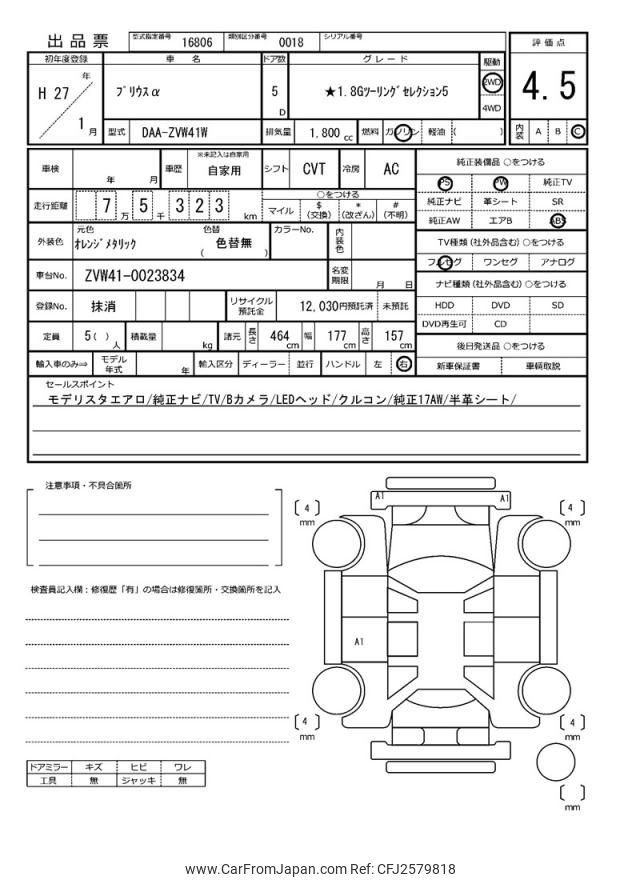 出品票 型式指定番号 16806 類別区分番号 0018 シリアル番号
評価点
4.5
内装 A B C
初年度登録 車名 ドア数 グレード 駆動
H 27 年 / 1 月
プリウスα 5 D ★1.8Gツーリングセレクション5
2WD
4WD
型式 DAA-ZVW41W 排気量 1,800 cc 燃料 ガソリン 軽油 ( )
車検 年 月 車歴 ※未記入は自家用 自家用 シフト CVT 冷房 AC
走行距離 7 万 5 千 3 2 3 km
○をつける
マイル $ (交換) * (改ざん) # (不明)
外装色 元色 オレンジメタリック 色替 ( 色替無 ) カラーNo. 内装色
車台No. ZVW41-0023834 名変期限 月 日
登録No. 抹消 リサイクル預託金 12,030円預託済 未預託
定員 5( ) 人 積載量 kg 諸元 長さ 464 cm 幅 177 cm 高さ 157 cm
輸入車のみ⇒ モデル年式 年 輸入区分 ディーラー 並行 ハンドル 左 右
純正装備品 ○をつける
PS PW 純正TV
純正ナビ 革シート SR
純正AW エアB ABS
TV種類 (社外品含む) ○をつける
フルセグ ワンセグ アナログ
ナビ種類 (社外品含む) ○をつける
HDD DVD SD
DVD再生可 CD
後日発送品 ○をつける
新車保証書 車輌取説
セールスポイント
モデリスタエアロ/純正ナビ/TV/Bカメラ/LEDヘッド/クルコン/純正17AW/半革シート/
注意事項・不具合箇所
検査員記入欄：修復歴「有」の場合は修復箇所・交換箇所を記入
A1 A1
4 mm
4 mm
A1
4 mm
4 mm
mm
ドアミラー キズ ヒビ ワレ
工具 無 ジャッキ 無
www.CarFromJapan.com Ref: CFJ2579818